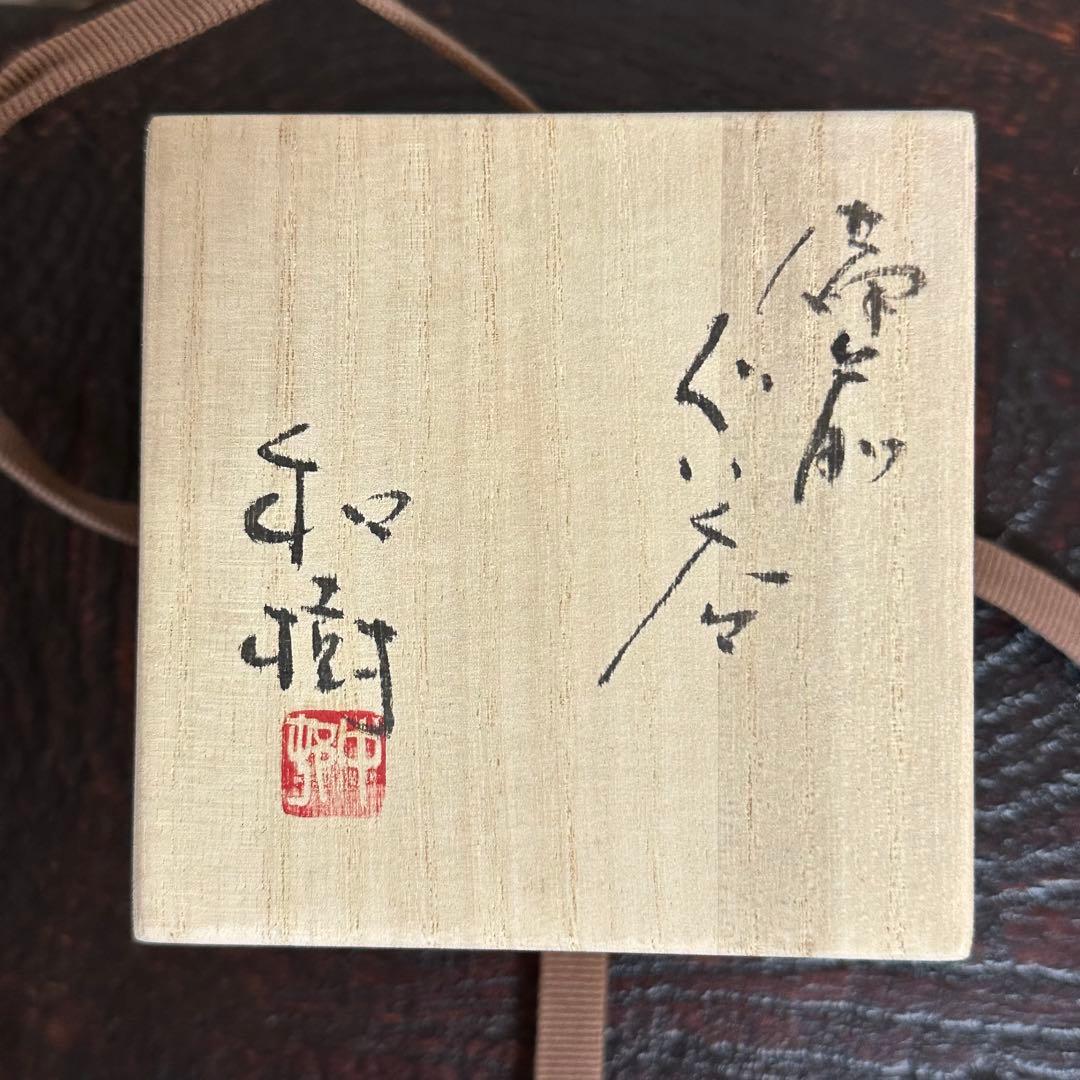 備前
ぐい呑
和樹